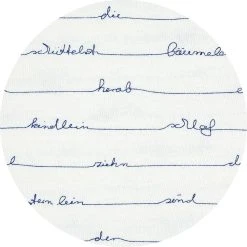 die
schüttelt bäumele
herab e
kindlein schlaf
l ziehn d
sternlein sind
der